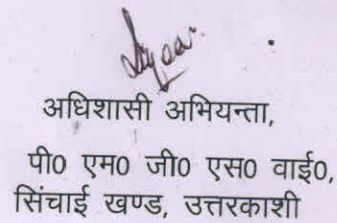 अधिशासी अभियन्ता,
पी0 एम0 जी0 एस0 वाई0,
सिंचाई खण्ड, उत्तरकाशी